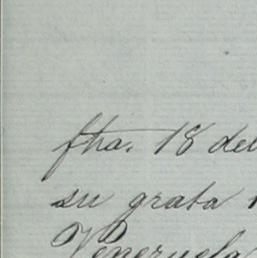 fha. 18 del
su grata
Venezuela